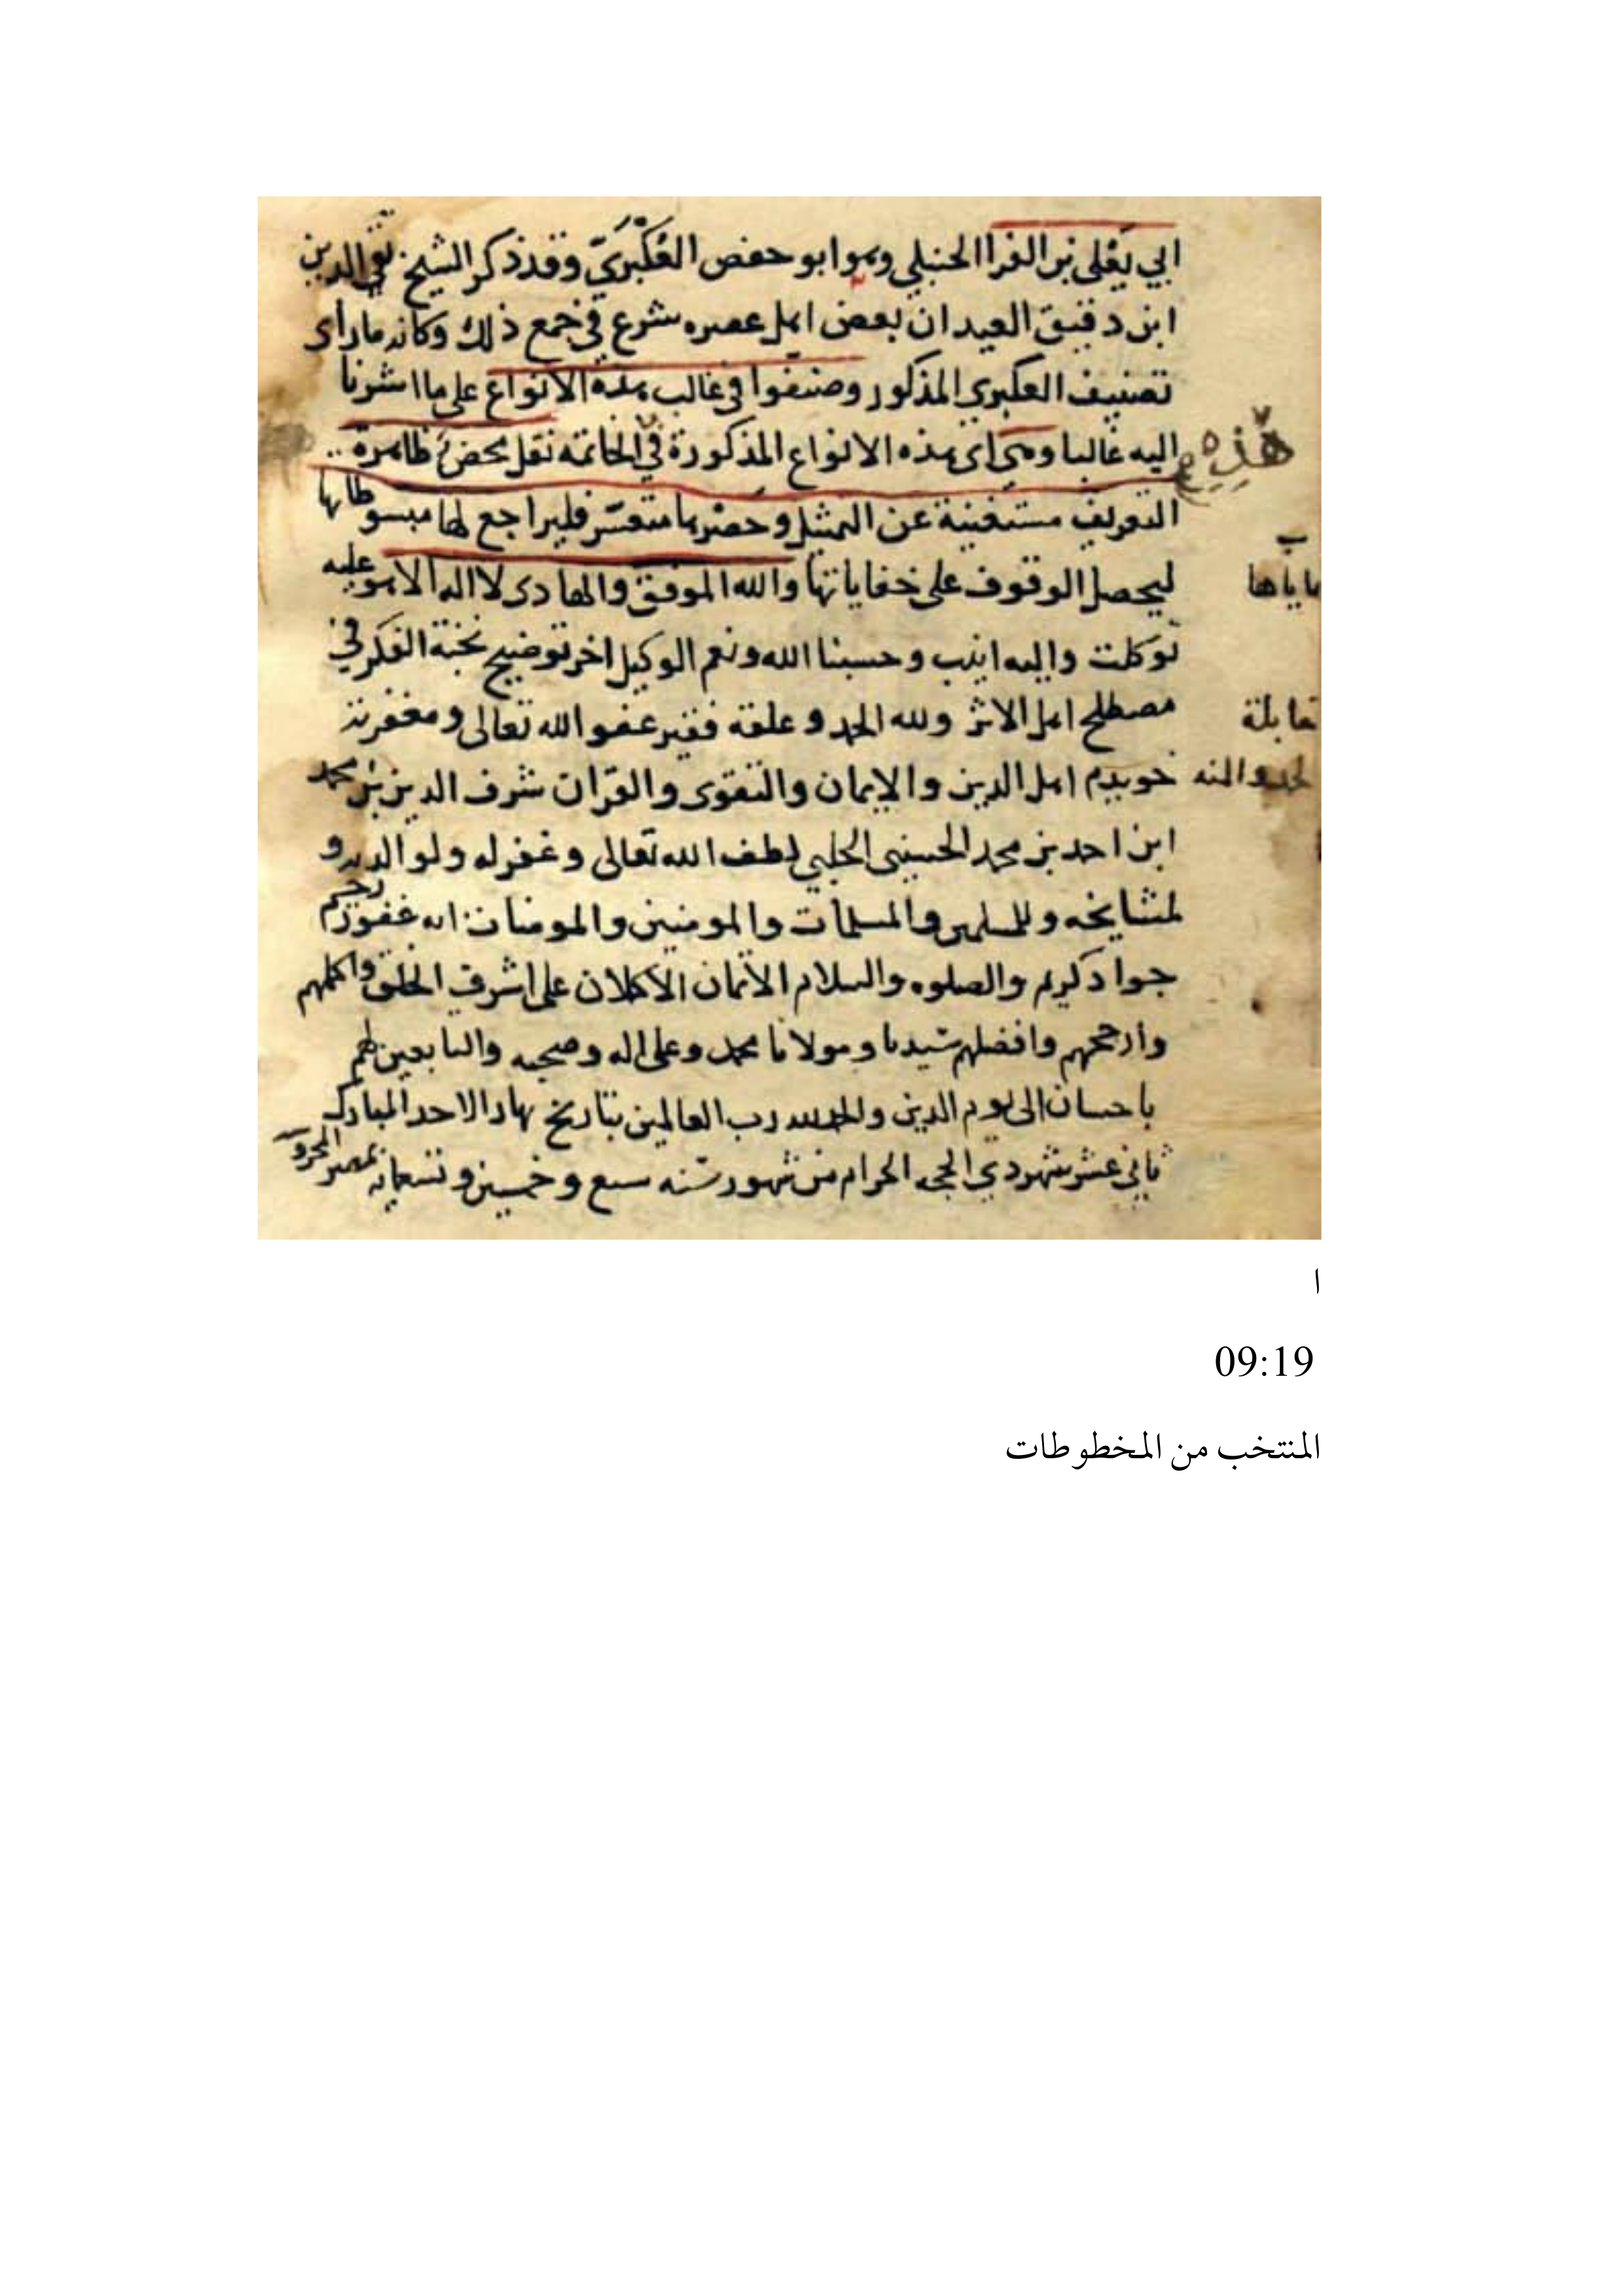 ابي يَعْلى بن الفرا الحنبلي وهو ابو حفص العُكْبَرَيّ وقد ذكر الشيخ تقي الدين
ابن دقيق العيد ان بعض اهل عصره شرع في جمع ذلك وكانه ما راى
تصنيف العكبري المذكور وصنفوا في غالب هذه الانواع على ما اشرنا
اليه غالبا وهي اى هذه الانواع المذكورة في الخاتمه نقل محض ظاهرة
هَذِه
التعريف مستغنية عن التمثيل وحصرها متعسّر فليراجع لها مبسوطاتها
ليحصل الوقوف على خفاياتها والله الموفق والهادى لا اله الا هو عليه
ياها
توكلت واليه انيب وحسبنا الله ونعم الوكيل اخر توضيح نخبة الفكر في
مصطلح اهل الاثر ولله الحمد وعلقه فقير عفو الله تعالى ومغفرته
قابلة
خويدم اهل الدين والايمان والتقوى والقران شرف الدين بن محمد
والمنه
ابن احمد بن محمد الحسيني الحلبي لطف الله تعالى وغفر له ولوالديه و
لمشايخه وللمسلمين والمسلمات والمومنين والمومنات انه غفور رحيم
جواد كريم والصلوه والسلام الاتمان الاكملان على اشرف الخلق واكملهم
وارجحهم وافضلهم سيدنا ومولانا محمد وعلى اله وصحبه والتابعين لهم
باحسان الى يوم الدين والحمد لله رب العالمين بتاريخ نهار الاحد المبارك
ثاني عشر شهر ذي الحجه الحرام من شهور سنه سبع وخمسين وتسعمايه بمصر المحروسة
ا
09:19
المنتخب من المخطوطات